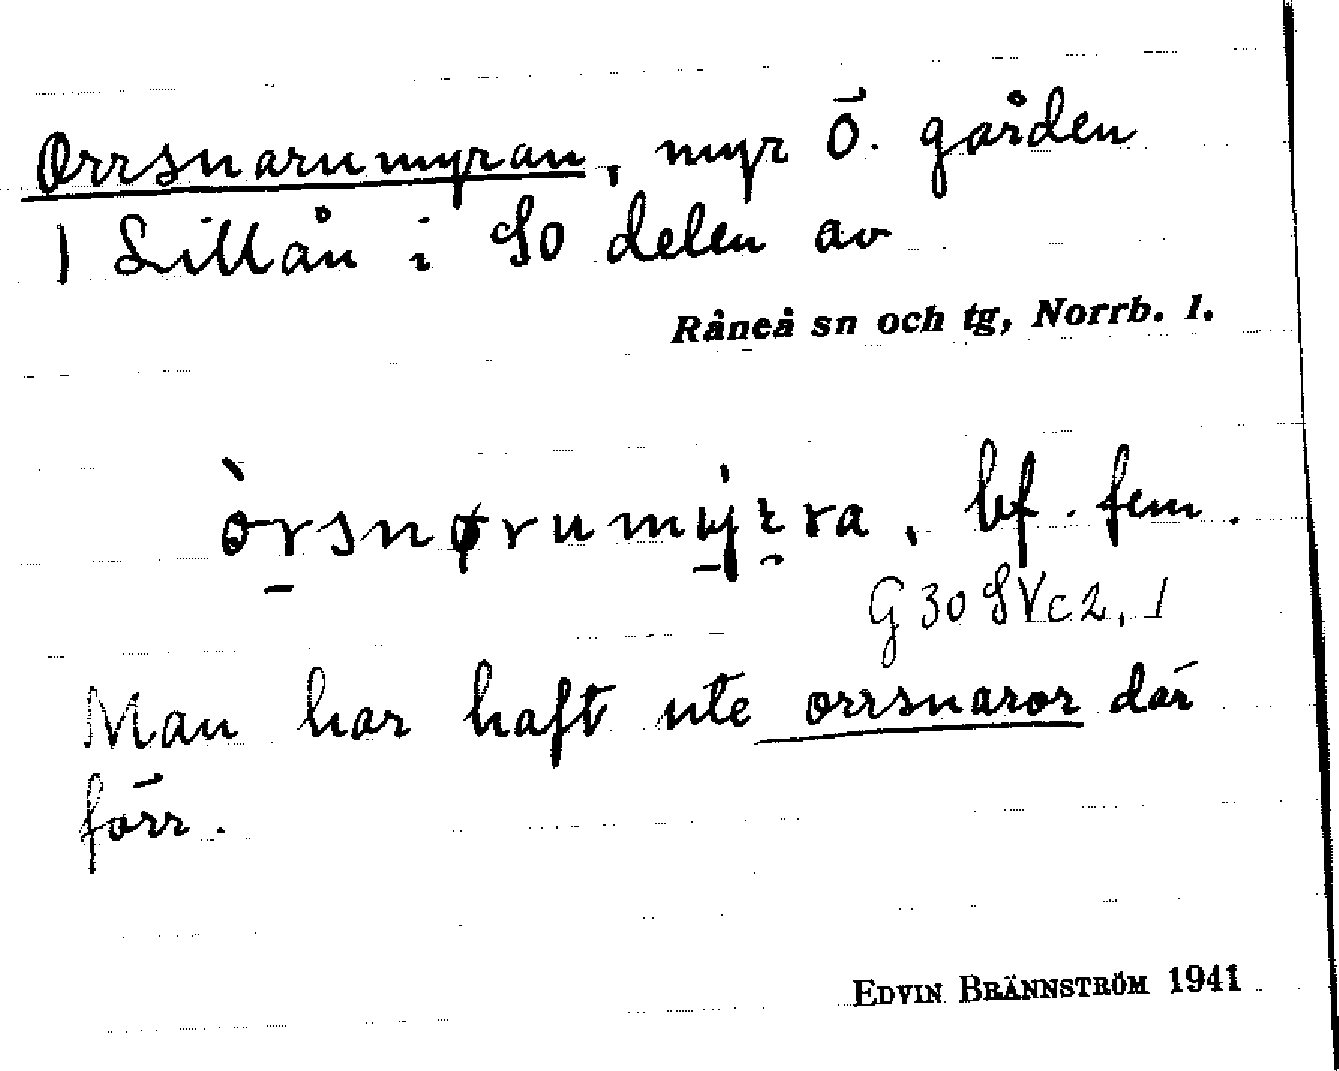 Orrsnarumyran, myr Ö. gården
1 Lillån i SO delen av
Råneå sn och tg, Norrb. l.
òrsnørumýrra, bf. fem.
G 30 SVc2, 1
Man har haft ute orrsnaror där
förr.
EDVIN BRÄNNSTRÖM 1941